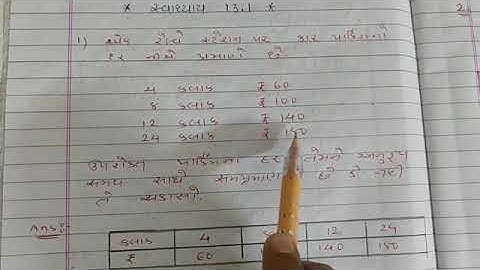 * સ્વાધ્યાય 13.1 *
1) એક રેલ્વે સ્ટેશન પર કાર પાર્કિંગનો
દર નીચે પ્રમાણે છે.
4 કલાક ₹ 60
8 કલાક ₹ 100
12 કલાક ₹ 140
24 કલાક ₹ 180
ઉપરોક્ત પાર્કિંગના દર તેમને અનુરૂપ
સમય સાથે સમપ્રમાણ છે કે નહીં
તે ચકાસો.
Ans:-
કલાક 4 12 24
₹ 60 140 180